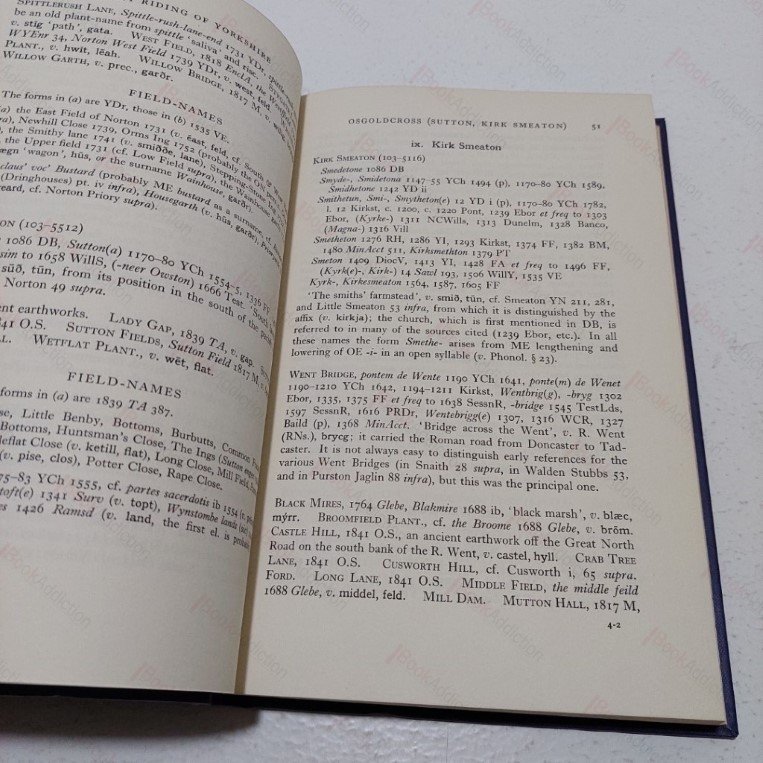 T RIDING OF YORKSHIRE
SPITTLERUSH LANE, Spittle-rush-lane-end 1731 YDr,
be an old plant-name from spittle 'saliva' and
v. stig 'path', gata. WEST FIELD, 1818 EnclA,
WYEnr 34, Norton West Field 1739 YDr, v. west, feld.
PLANT., v. hwīt, lēah. WILLOW BRIDGE, 1817 M,
WILLOW GARTH, v. prec., garðr.
FIELD-NAMES
The forms in (a) are YDr, those in (b) 1535 VE.
(a) the East Field of Norton 1731 (v. ēast, feld, cf. South
), Newhill Close 1739, Orms Ing 1752 (probably the
the Smithy lane 1741 (v. smiððe, lane), Stepping-Stone
the Upper field 1731 (cf. Low Field supra), the Wainhouse
ægn 'wagon', hūs, or the surname Wainhouse, garðr),
claus' voc' Bustard (probably ME bustard as a surname, cf.
(Dringhouses) pt. iv infra), Housegarth (v. hūs, garðr),
eard, cf. Norton Priory supra).
ON (103-5512)
1086 DB, Sutton(a) 1170-80 YCh 1554-5, 1336 FF
sim to 1658 WillS, (-neer Owston) 1666 Test.
sūð, tūn, from its position in the south of the
Norton 49 supra.
ent earthworks. LADY GAP, 1839 TA, v. gap.
841 O.S. SUTTON FIELDS, Sutton Field 1817 M,
LL. WETFLAT PLANT., v. wēt, flat.
FIELD-NAMES
forms in (a) are 1839 TA 387.
se, Little Benby, Bottoms, Burbutts, Common
Bottoms, Huntsman's Close, The Ings (Sutton
deflat Close (v. ketill, flat), Long Close, Mill Field,
(v. pise, clos), Potter Close, Rape Close.
75-83 YCh 1555, cf. partes sacerdotis ib 1554
toft(e) 1341 Surv (v. topt), Wynstombe lands
es 1426 Ramsd (v. land, the first el. is
OSGOLDCROSS (SUTTON, KIRK SMEATON) 51
ix. Kirk Smeaton
KIRK SMEATON (103-5116)
Smedetone 1086 DB
Smyde-, Smidetona 1147-55 YCh 1494 (p), 1170-80 YCh 1589,
Smidhetone 1242 YD ii
Smithetun, Smi-, Smytheton(e) 12 YD i (p), 1170-80 YCh 1782,
l. 12 Kirkst, c. 1200, c. 1220 Pont, 1239 Ebor et freq to 1303
Ebor, (Kyrke-) 1311 NCWills, 1313 Dunelm, 1328 Banco,
(Magna-) 1316 Vill
Smetheton 1276 RH, 1286 YI, 1293 Kirkst, 1374 FF, 1382 BM,
1480 MinAcct 511, Kirksmethton 1379 PT
Smeton 1409 DiocV, 1413 YI, 1428 FA et freq to 1496 FF,
(Kyrk(e)-, Kirk-) 14 Sawl 193, 1506 WillY, 1535 VE
Kyrk-, Kirkesmeaton 1564, 1587, 1605 FF
'The smiths' farmstead', v. smið, tūn, cf. Smeaton YN 211, 281,
and Little Smeaton 53 infra, from which it is distinguished by the
affix (v. kirkja); the church, which is first mentioned in DB, is
referred to in many of the sources cited (1239 Ebor, etc.). In all
these names the form Smethe- arises from ME lengthening and
lowering of OE -i- in an open syllable (v. Phonol. § 23).
WENT BRIDGE, pontem de Wente 1190 YCh 1641, ponte(m) de Wenet
1190-1210 YCh 1642, 1194-1211 Kirkst, Wentbrig(g), -bryg 1302
Ebor, 1335, 1375 FF et freq to 1638 SessnR, -bridge 1545 TestLds,
1597 SessnR, 1616 PRDr, Wentebrigg(e) 1307, 1316 WCR, 1327
Baild (p), 1368 MinAcct. 'Bridge across the Went', v. R. Went
(RNs.), brycg; it carried the Roman road from Doncaster to Tad-
caster. It is not always easy to distinguish early references for the
various Went Bridges (in Snaith 28 supra, in Walden Stubbs 53,
and in Purston Jaglin 88 infra), but this was the principal one.
BLACK MIRES, 1764 Glebe, Blakmire 1688 ib, 'black marsh', v. blæc,
mýrr. BROOMFIELD PLANT., cf. the Broome 1688 Glebe, v. brōm.
CASTLE HILL, 1841 O.S., an ancient earthwork off the Great North
Road on the south bank of the R. Went, v. castel, hyll. CRAB TREE
LANE, 1841 O.S. CUSWORTH HILL, cf. Cusworth i, 65 supra.
FORD. LONG LANE, 1841 O.S. MIDDLE FIELD, the middle feild
1688 Glebe, v. middel, feld. MILL DAM. MUTTON HALL, 1817 M,
4-2